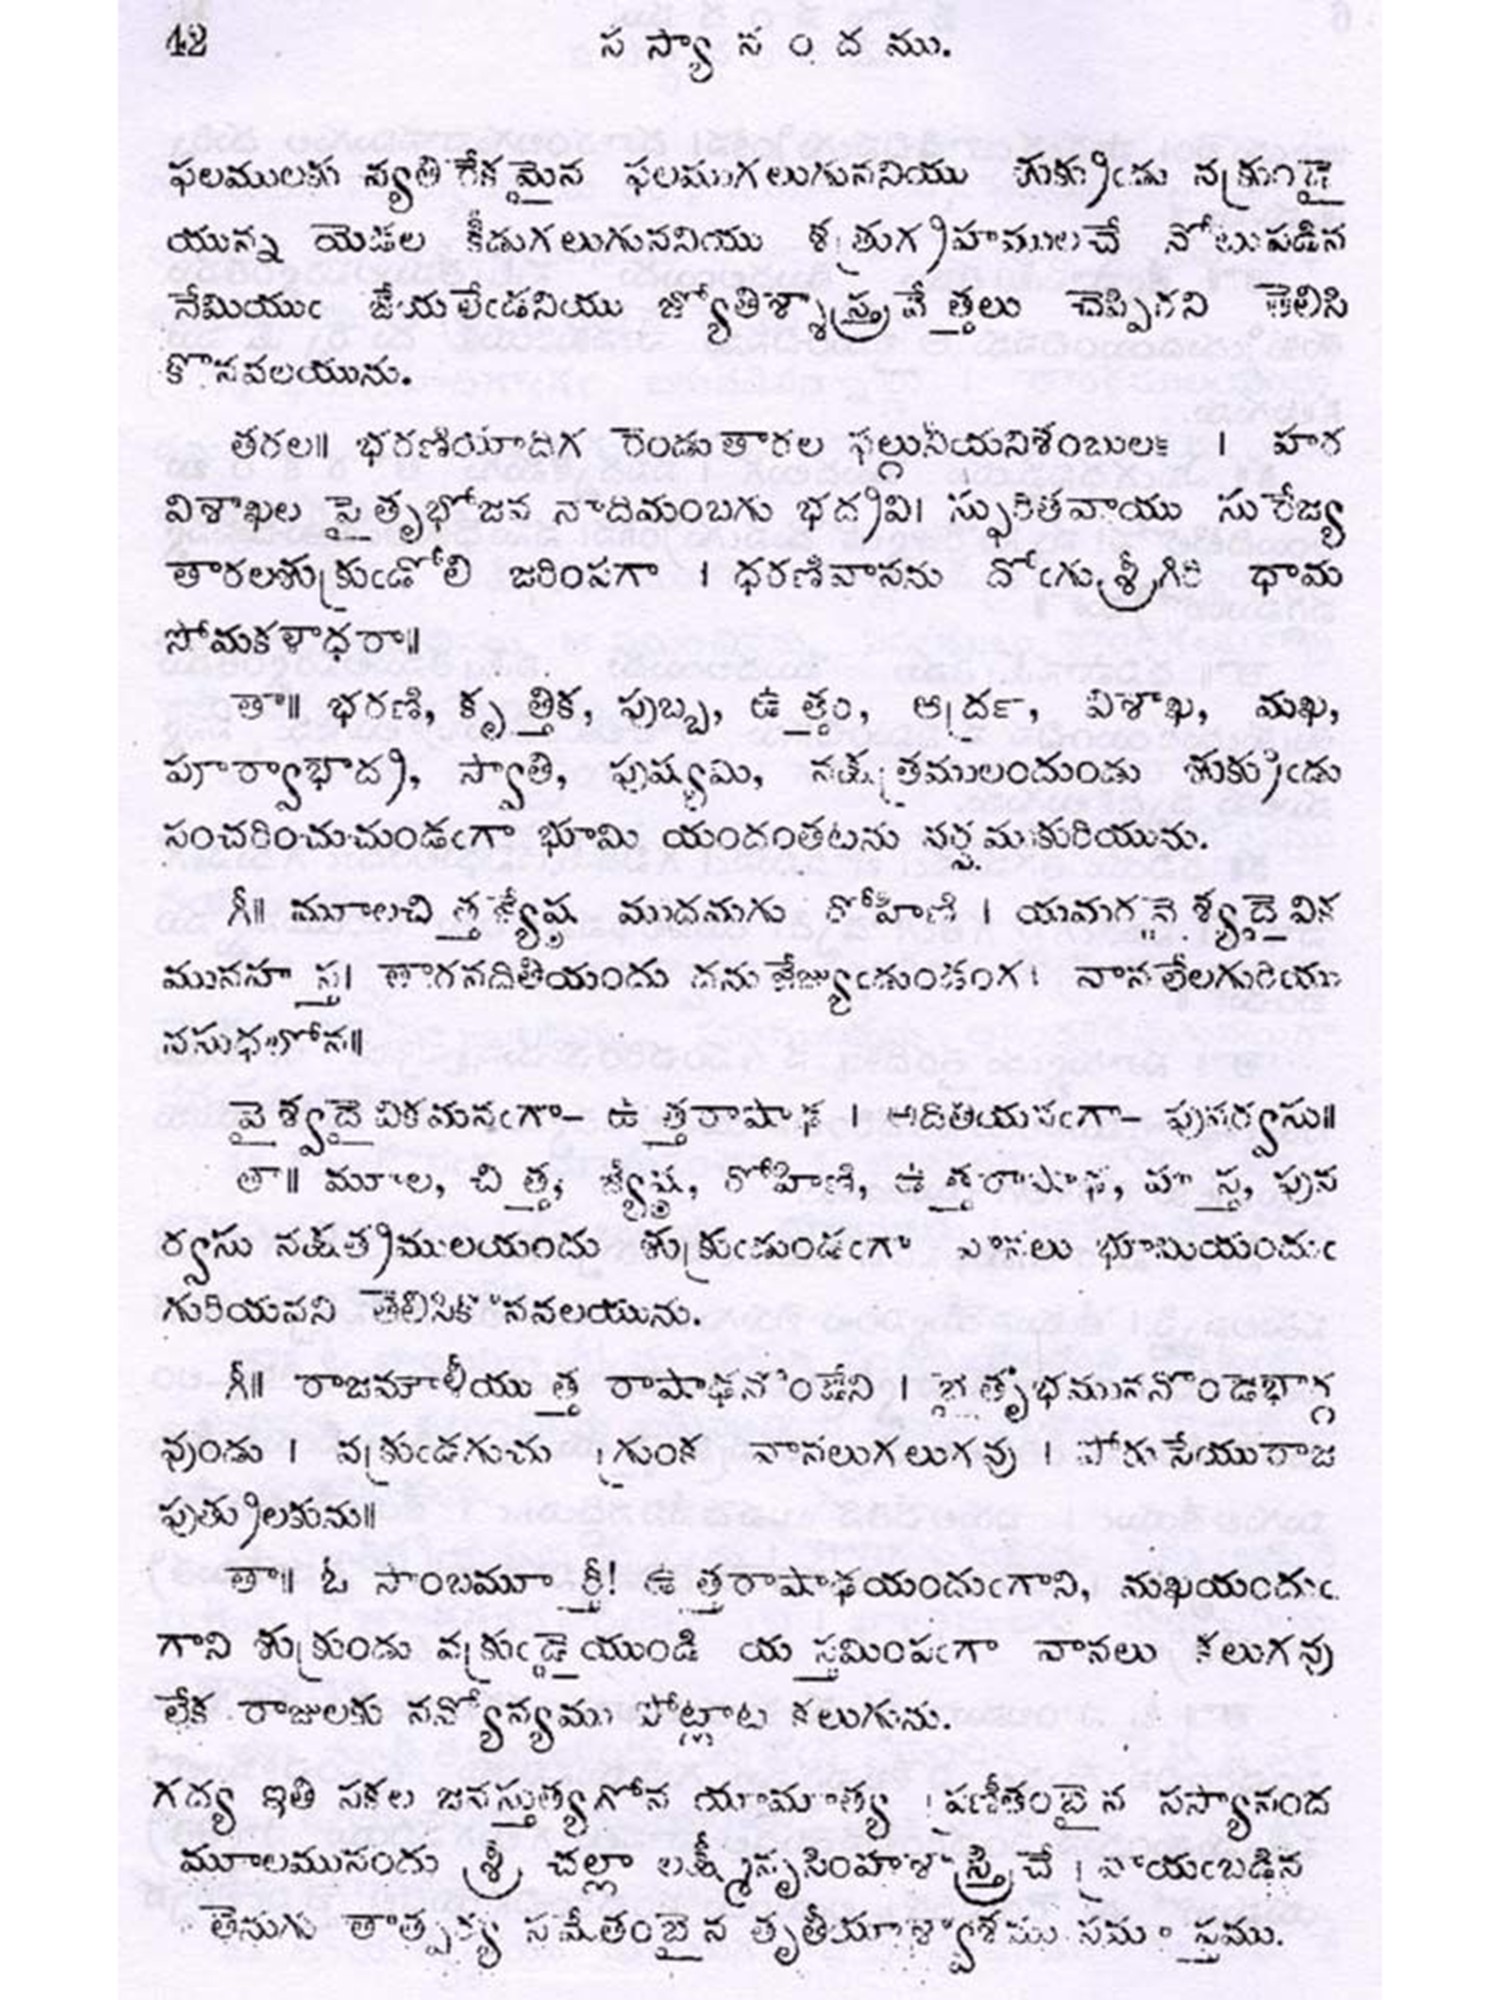 42 సస్యానందము.
ఫలములకు వ్యతి రేకమైన ఫలముగలుగుననియు శుక్రుఁడు వక్రుండై
యున్న యెడల కీడుగలుగుననియు శత్రుగ్రహములచే నోటుపడిన
నేమియుఁ జేయలేఁడనియు జ్యోతిశ్శాస్త్రవేత్తలు చెప్పిరని తెలిసి
కొనవలయును.
తరల॥ భరణియాదిగ రెండుతారల ఫల్గునీయనిశంబుల । హర
విశాఖల పైతృభోజన నాదిమంబగు భద్రవి। స్ఫురితవాయు సురేజ్య
తారలశుక్రుఁడోలి జరింపగా । ధరణివానను దోఁగుశ్రీగిరి ధామ
సోమకళాధరా॥
తా॥ భరణి, కృత్తిక, పుబ్బ, ఉత్తర, ఆర్ద్ర, విశాఖ, మఖ,
పూర్వాభాద్ర, స్వాతి, పుష్యమి, నక్షత్రములందుండు శుక్రుఁడు
సంచరించుచుండఁగా భూమి యందంతటను వర్షముకురియును.
గీ॥ మూలచిత్తజ్యేష్ఠ ముదమగు రోహిణి । యమరగ వైశ్వదైవిక
మునహస్త। తాగనదితియందు దనుజేజ్యుఁడుండంగ। వానలేలగురియు
వసుధలోన॥
వైశ్వదైవికమనఁగా- ఉత్తరాషాఢ । అదితియనఁగా- పునర్వసు॥
తా॥ మూల, చిత్త, జ్యేష్ఠ, రోహిణి, ఉత్తరాషాఢ, హస్త, పున
ర్వసు నక్షత్రములయందు శుక్రుఁడుండఁగా వానలు భూమియందుఁ
గురియవని తెలిసికొనవలయును.
గీ॥ రాజమౌళీయుత్త రాషాఢనొండేని । పితృభముననొండెభార్గ
వుండు । వక్రుఁడగుచు గ్రుంక వానలుగలుగవు । పోరు సేయురాజ
పుత్రులకును॥
తా॥ ఓ సాంబమూర్తీ! ఉత్తరాషాఢయందుఁగాని, మఖయందుఁ
గాని శుక్రుండు వక్రుఁడైయుండి యస్తమింపఁగా వానలు కలుగవు
లేక రాజులకు నన్యోన్యము పోట్లాట కలుగును.
గద్య ఇతి సకల జనస్తుత్యగోన యామాత్య ప్రణీతంబైన సస్యానంద
మూలమునందు శ్రీ చల్లా లక్ష్మీనృసింహశాస్త్రిచే వ్రాయఁబడిన
తెనుగు తాత్పర్య సమేతంబైన తృతీయాశ్వాశము సమాప్తము.